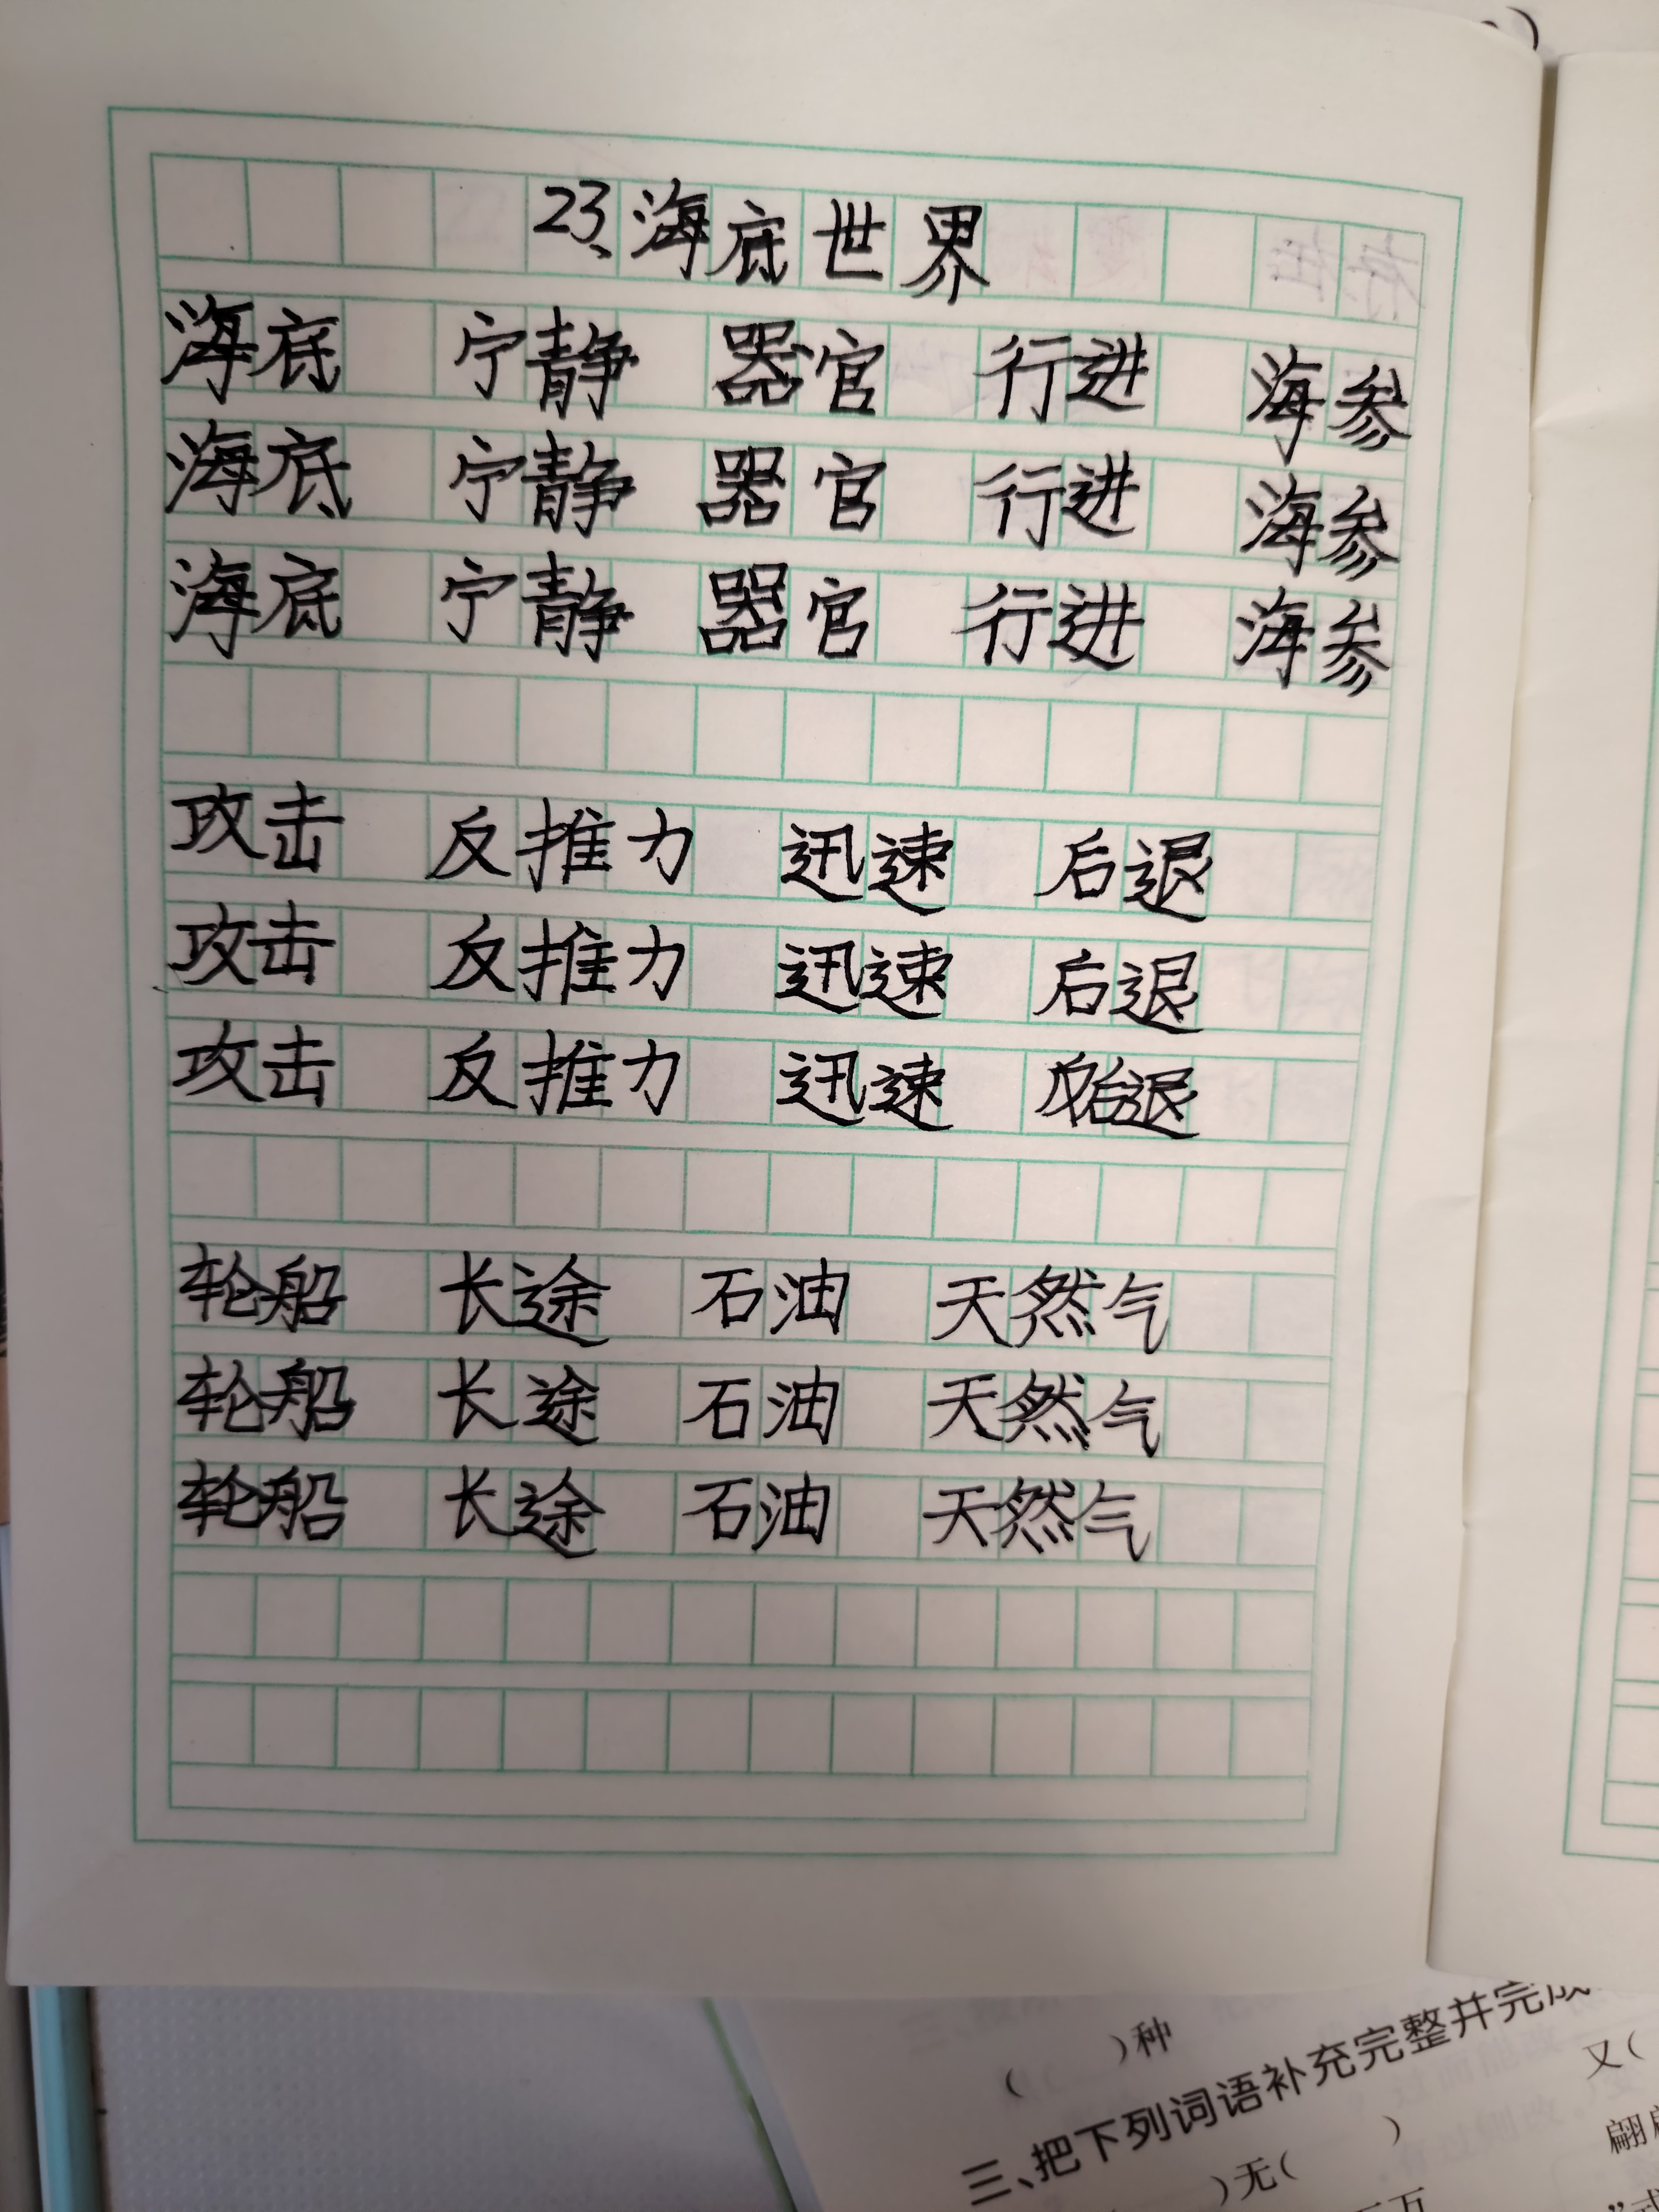 23、海底世界
海底 宁静 器官 行进 海参
海底 宁静 器官 行进 海参
海底 宁静 器官 行进 海参
攻击 反推力 迅速 后退
攻击 反推力 迅速 后退
攻击 反推力 迅速 退
轮船 长途 石油 天然气
轮船 长途 石油 天然气
轮船 长途 石油 天然气
( )种
三、把下列词语补充完整并完成
又(
)无( )